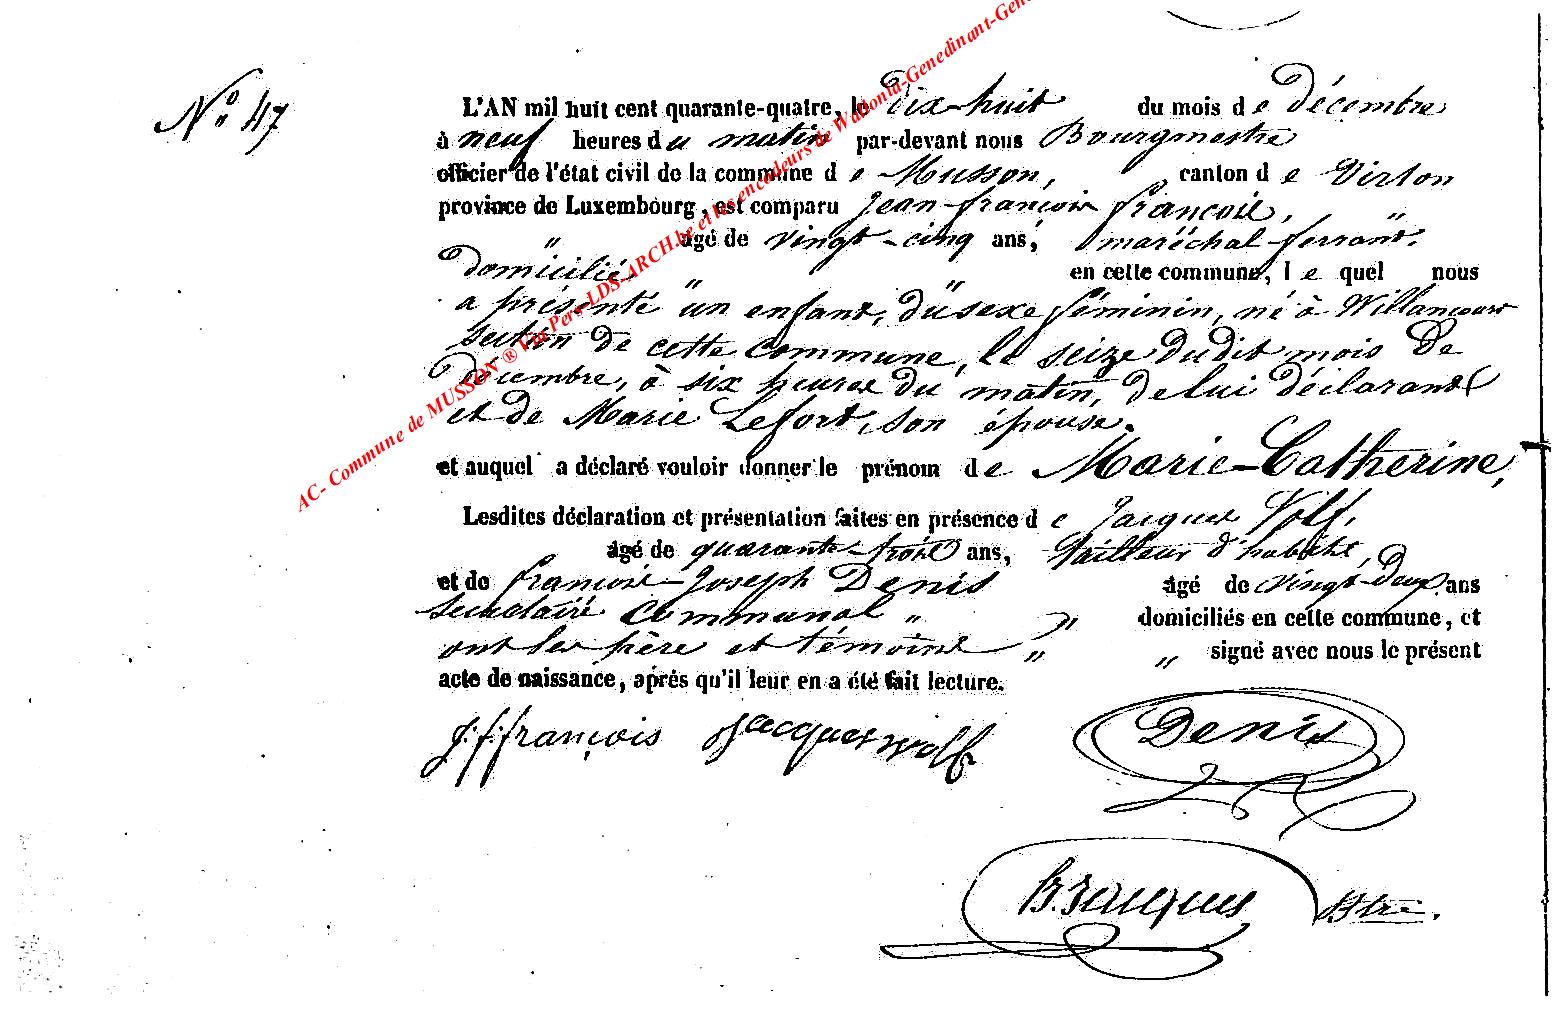 N.° 47
L'AN mil huit cent quarante-quatre, le Dix-huit du mois de Décembre
à neuf heures du matin par-devant nous Bourgmestre
officier de l'état civil de la commune de Musson, canton de Virton
province de Luxembourg, est comparu Jean-françois françois,
" âgé de vingt-cinq ans, maréchal-ferrant. "
Domicilié " " en cette commune, lequel nous
a présenté un enfant, du sexe féminin, né à Willancourt
section de cette commune, le seize dudit mois De
Décembre, à six heures du matin, de lui déclarant
et de Marie Lefort, son épouse.
et auquel a déclaré vouloir donner le prénom de Marie-Catherine,
Lesdites déclaration et présentation faites en présence de Jacques Volf,
âgé de quarante-trois ans, tailleur d'habits,
et de françois-Joseph Denis âgé de vingt-deux ans
secrétaire communal " " domiciliés en cette commune, et
ont les père et témoins " " signé avec nous le présent
acte de naissance, après qu'il leur en a été fait lecture.
J: f: françois Jacques Wolf Denis
Jacques Btre.
AC- Commune de MUSSON ® Via Pers-LDS-ARCH.be et les encodeurs de Wallonia-Genedinant-Gene